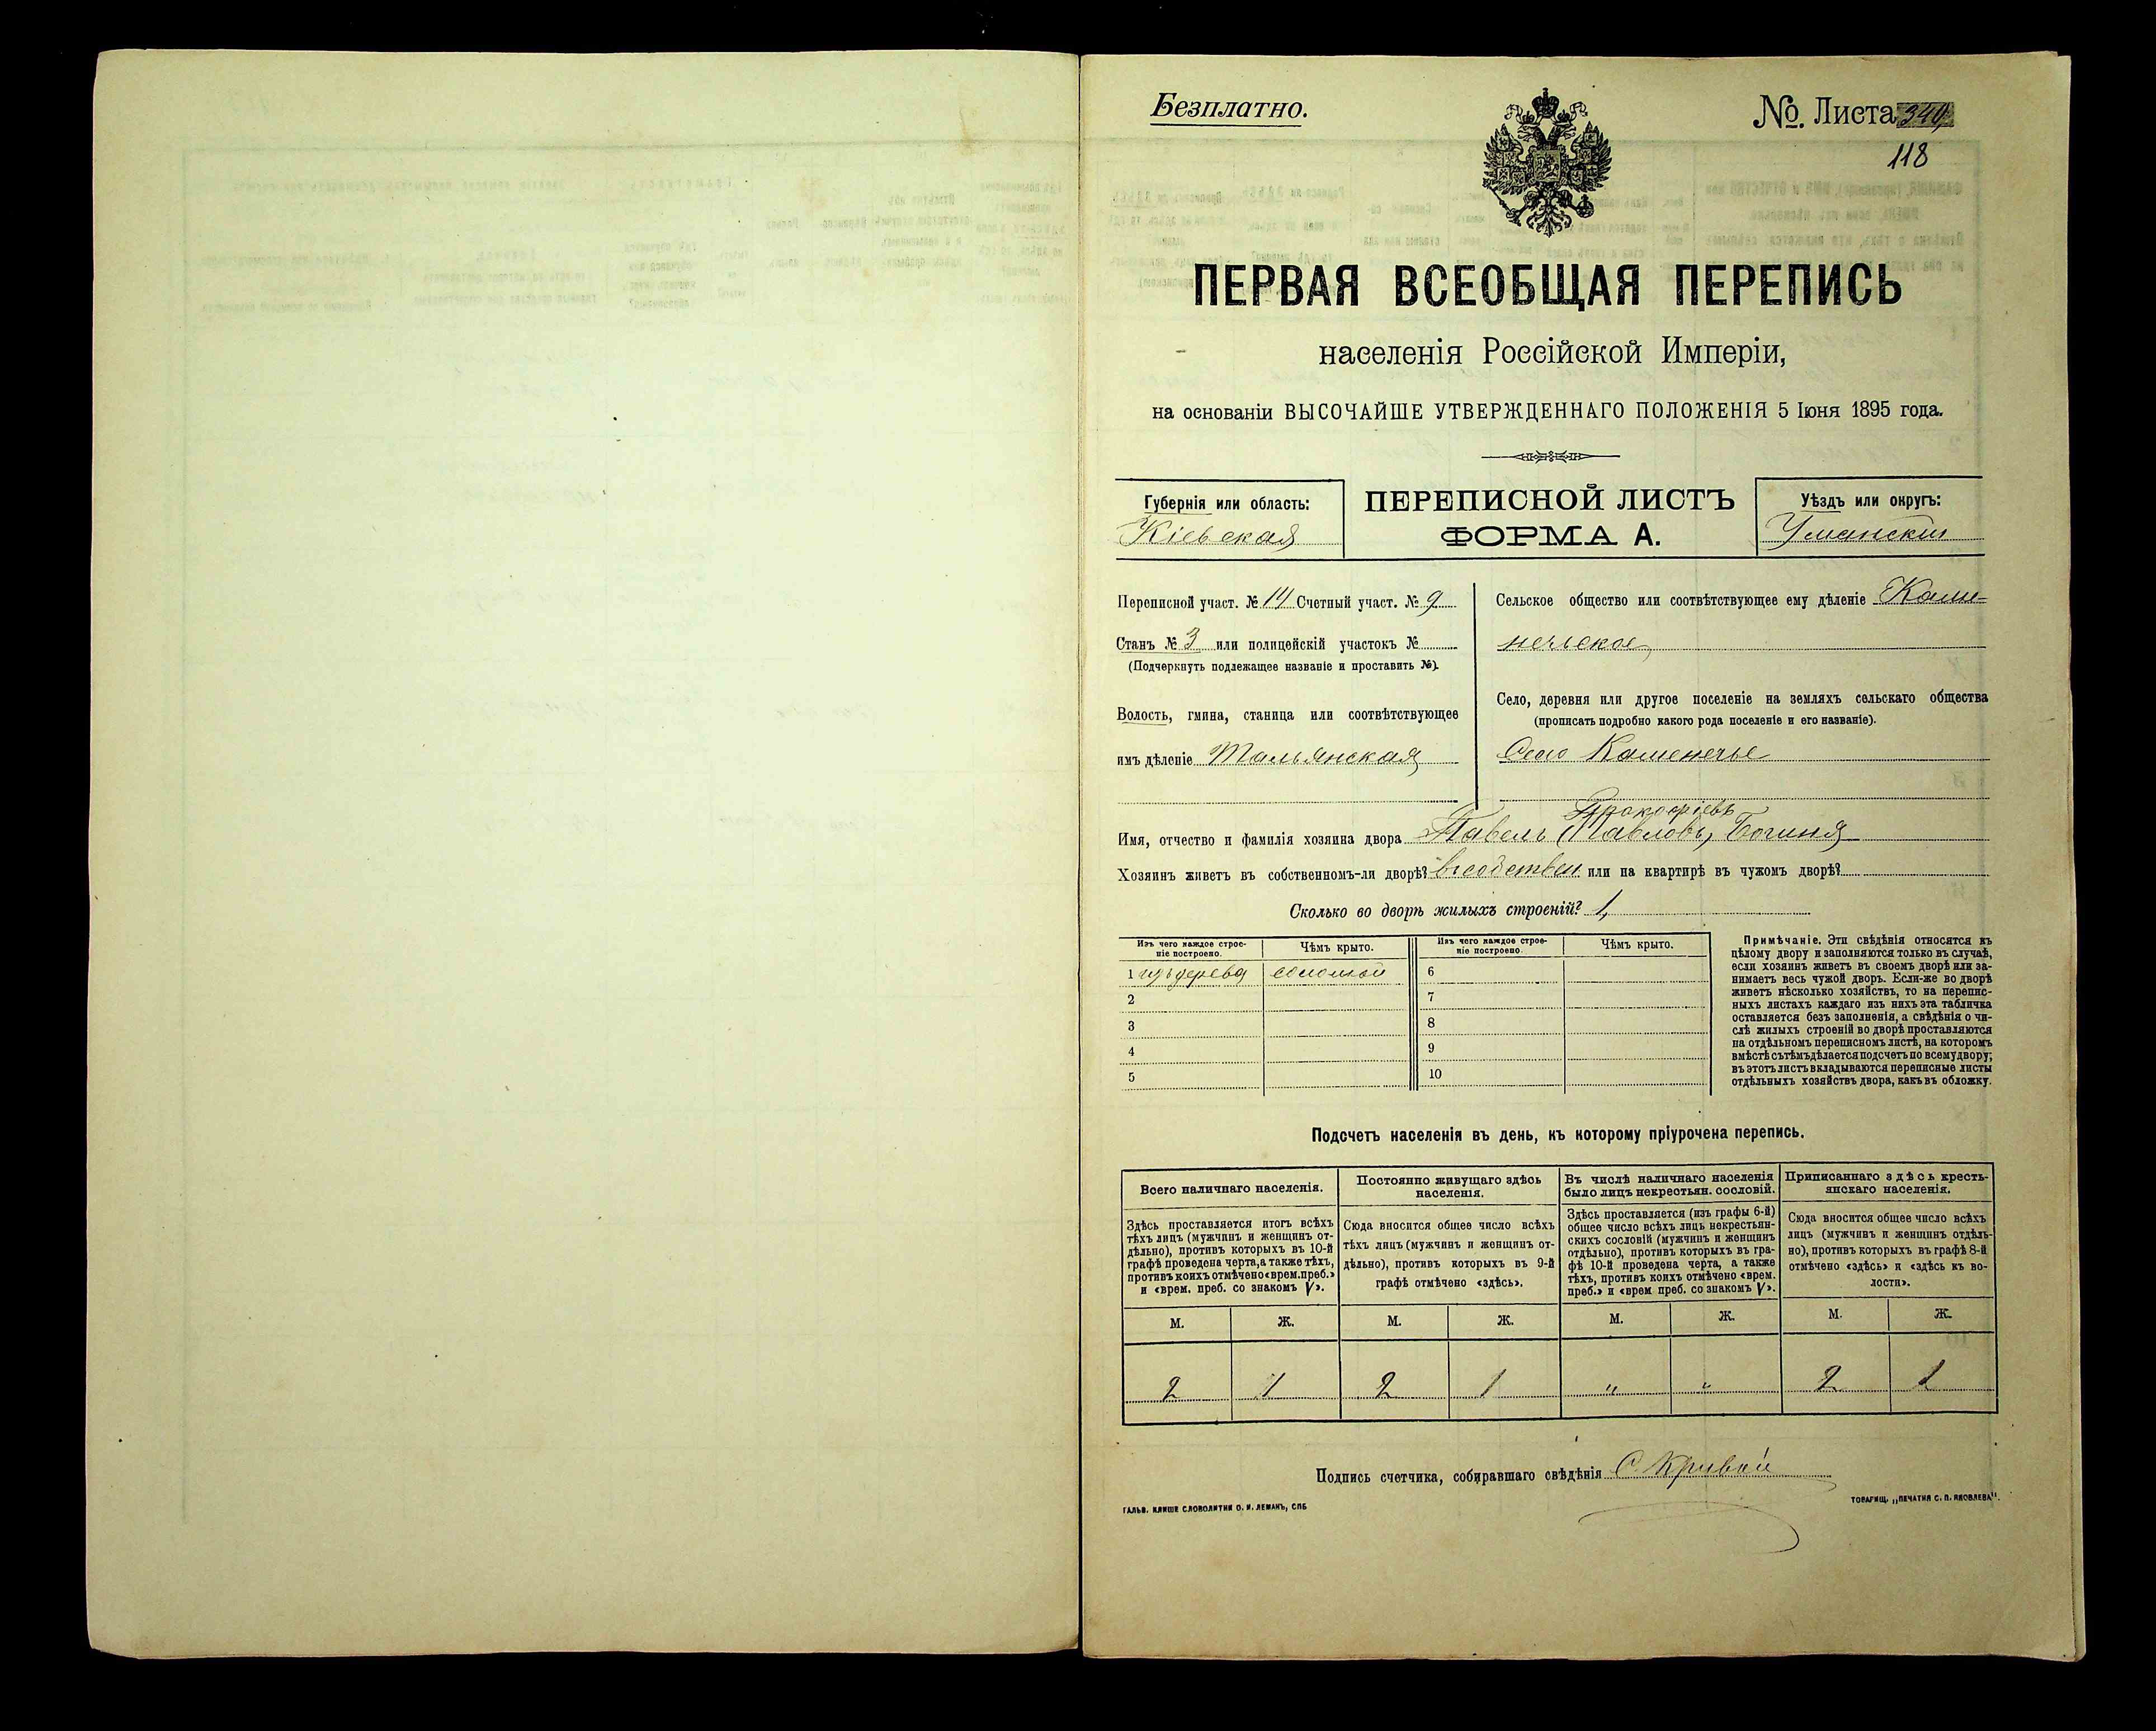 Безплатно.
№. Листа 340,
118
ПЕРВАЯ ВСЕОБЩАЯ ПЕРЕПИСЬ
населенія Россійской Имперіи,
на основаніи ВЫСОЧАЙШЕ УТВЕРЖДЕННАГО ПОЛОЖЕНІЯ 5 Іюня 1895 года.
Губернія или область:
Кіевская
ПЕРЕПИСНОЙ ЛИСТЪ
ФОРМА А.
Уѣздъ или округъ:
Уманскій
Переписной участ. № 14 Счетный участ. № 9
Станъ № 3 или полицейскій участокъ №
(Подчеркнуть подлежащее названіе и проставить №).
Волость, гмина, станица или соотвѣтствующее
имъ дѣленіе Тальянская
Сельское общество или соотвѣтствующее ему дѣленіе Каме-
нечьское
Село, деревня или другое поселеніе на земляхъ сельскаго общества
(прописать подробно какого рода поселеніе и его названіе).
Село Каменечье
Прокофіевъ
Имя, отчество и фамилія хозяина двора Павелъ (Павловъ) Богиня
Хозяинъ живетъ въ собственномъ-ли дворѣ? въ собствен или на квартирѣ въ чужомъ дворѣ?
Сколько во дворѣ жилыхъ строеній? 1,
Изъ чего каждое строе-
ніе построено.
Чѣмъ крыто.
Изъ чего каждое строе-
ніе построено.
Чѣмъ крыто.
1 изъ дерева соломой 6
2 7
3 8
4 9
5 10
Примѣчаніе. Эти свѣдѣнія относятся къ
цѣлому двору и заполняются только въ случаѣ,
если хозяинъ живетъ въ своемъ дворѣ или за-
нимаетъ весь чужой дворъ. Если-же во дворѣ
живетъ нѣсколько хозяйствъ, то на перепис-
ныхъ листахъ каждаго изъ нихъ эта табличка
оставляется безъ заполненія, а свѣдѣнія о чи-
слѣ жилыхъ строеній во дворѣ проставляются
на отдѣльномъ переписномъ листѣ, на которомъ
вмѣстѣ съ тѣмъ дѣлается подсчетъ по всему двору;
въ этотъ листъ вкладываются переписные листы
отдѣльныхъ хозяйствъ двора, какъ въ обложку.
Подсчетъ населенія въ день, къ которому пріурочена перепись.
Всего наличнаго населенія.
Здѣсь проставляется итогъ всѣхъ
тѣхъ лицъ (мужчинъ и женщинъ от-
дѣльно), противъ которыхъ въ 10-й
графѣ проведена черта, а также тѣхъ,
противъ коихъ отмѣчено «врем. преб.»
и «врем. преб. со знакомъ V».
Постоянно живущаго здѣсь
населенія.
Сюда вносится общее число всѣхъ
тѣхъ лицъ (мужчинъ и женщинъ от-
дѣльно), противъ которыхъ въ 9-й
графѣ отмѣчено «здѣсь».
Въ числѣ наличнаго населенія
было лицъ некрестьян. сословій.
Здѣсь проставляется (изъ графы 6-й)
общее число всѣхъ лицъ некрестьян-
скихъ сословій (мужчинъ и женщинъ
отдѣльно), противъ которыхъ въ гра-
фѣ 10-й проведена черта, а также
тѣхъ, противъ коихъ отмѣчено «врем.
преб.» и «врем преб. со знакомъ V».
Приписаннаго здѣсь кресть-
янскаго населенія.
Сюда вносится общее число всѣхъ
лицъ (мужчинъ и женщинъ отдѣль-
но), противъ которыхъ въ графѣ 8-й
отмѣчено «здѣсь» и «здѣсь къ во-
лости».
М. Ж. М. Ж. М. Ж. М. Ж.
2 1 2 1 " " 2 1
Подпись счетчика, собиравшаго свѣдѣнія С. Кривой
ГАЛЬВ. КЛИШЕ СЛОВОЛИТНИ О. И. ЛЕМАНЪ, СПБ
ТОВАРИЩ. „ПЕЧАТНЯ С. П. ЯКОВЛЕВА".